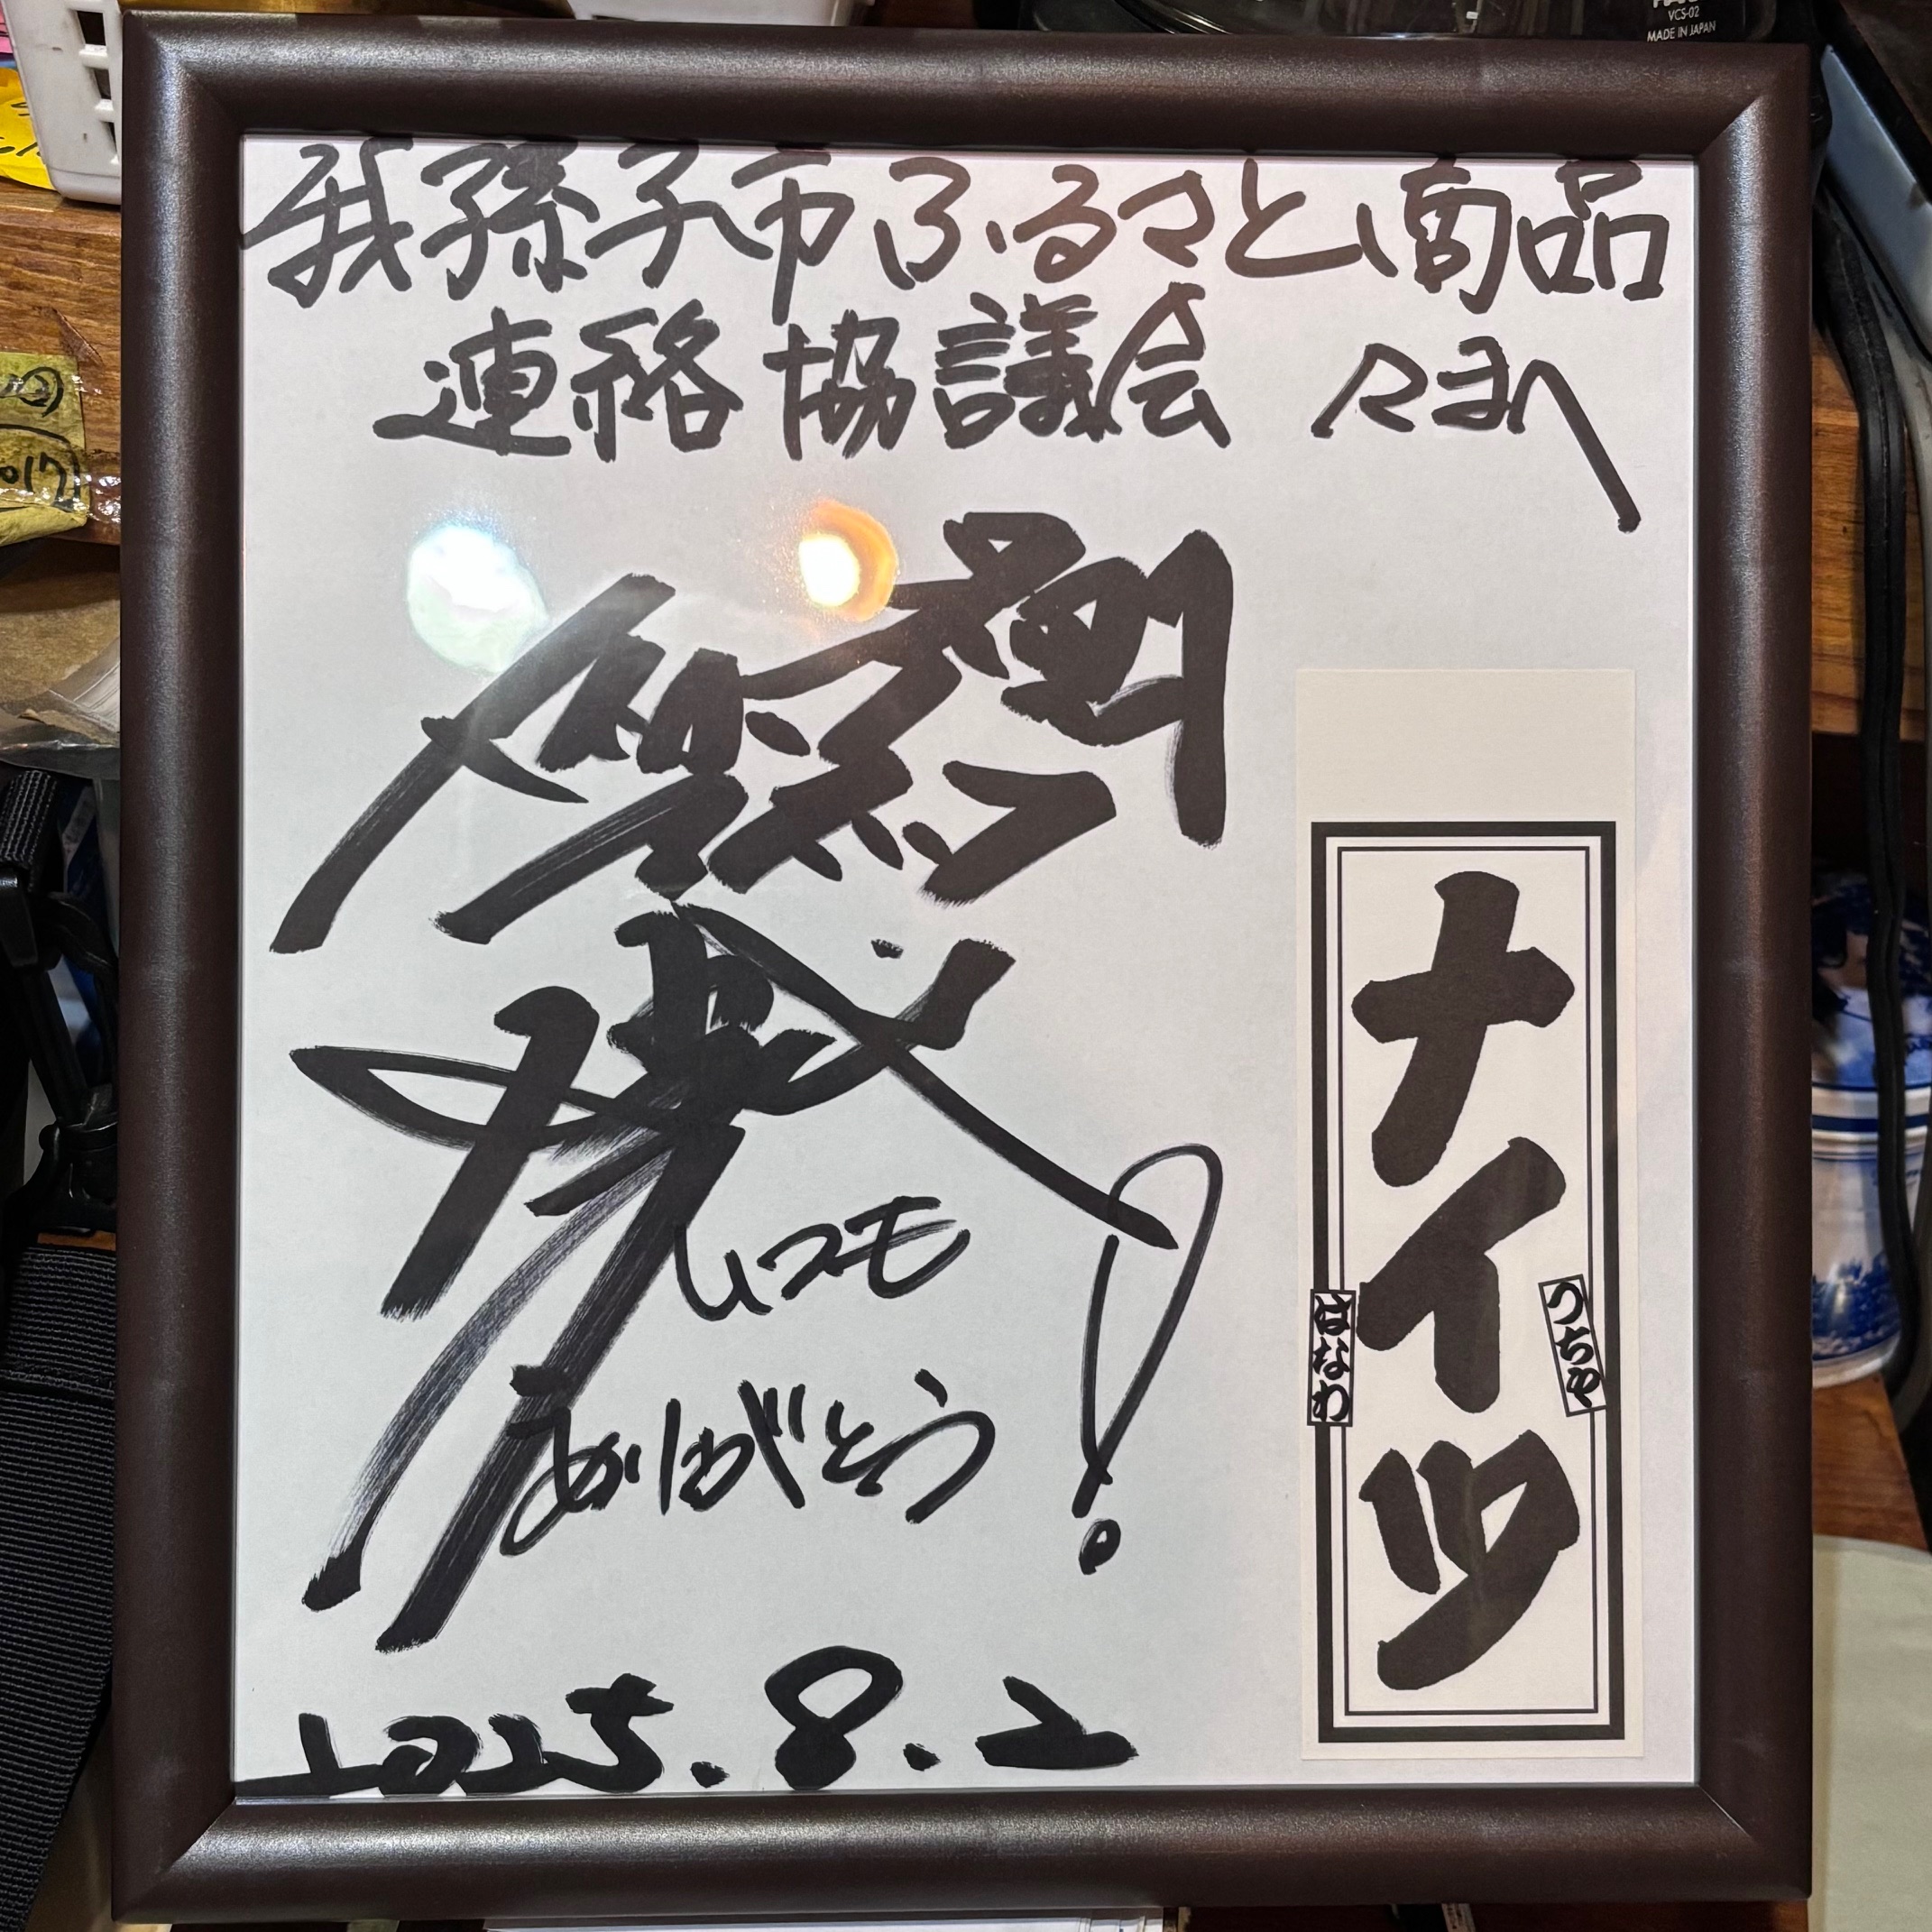 我孫子市ふるさと商品
連絡協議会 さま
いつも
ありがとう!
2025.8.2
ナイツ
つちや
はなわ
VCS-02
MADE IN JAPAN